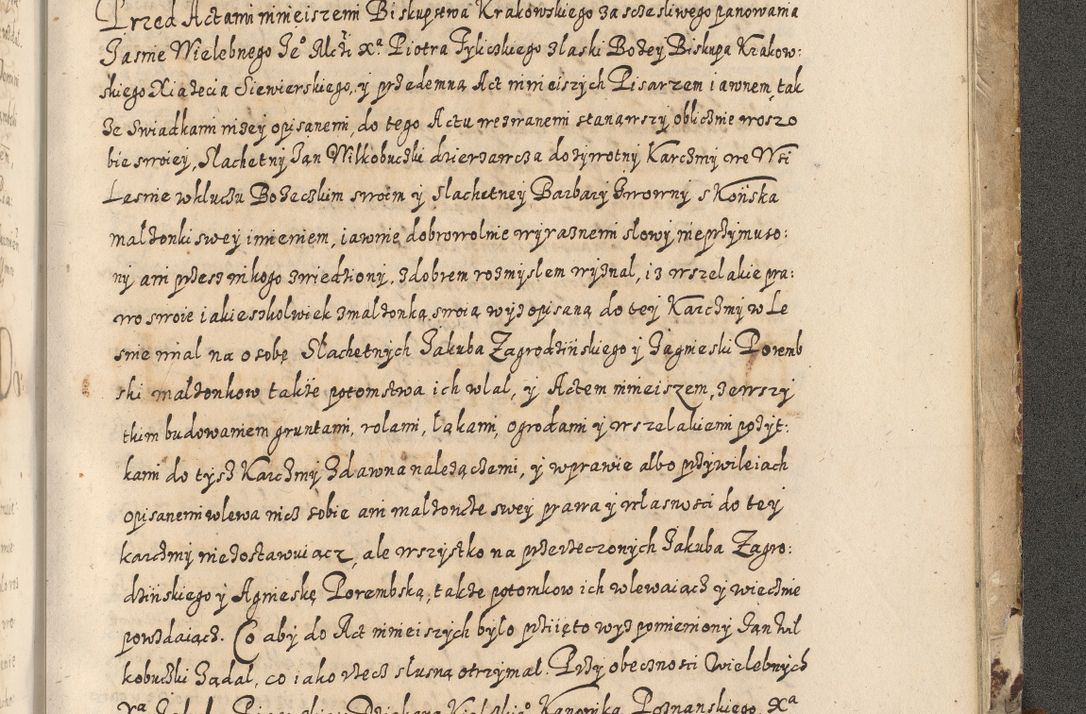 Przed Actami ninieiszemi Biskupstwa Krakowskiego za sczesliwego panowania
Jasnie Wielebnego Je° Mćzi Xª Piotra Tylickiego z laski Bozey Biskupa Krakow:
skiego Xiązecia Siewierskiego, y przedemną Act ninieiszych Pisarzem iawnem, tak
ze swiadkami nizey opisanemi, do tego Actu wezwanemi stanąwszy oblicznie w oszo
bie swoiey, Slachetny Jan Wilkobuczki dzierzawcza dozywotny Karczmy we Wsi
Lesnie w kluczu Bozeczkim swoim y slachetney Barbary Gwowny s Końska
malzonki swey imieniem, iawnie dobrowolnie wyraznemi slowy, nieprzymuszo:
ny ani przesz nikogo zwiedziony, z dobrem rozmyslem wyznal, iz wszelakie pra:
wo swoie iakieszkolwiek z malzonką swoią wyz opisaną do tey Karczmy w Le
snie mial na osobę Slachetnych Jakuba Zagrodzińskiego y Jagnieski Poremb
ski malzonkow takze potomstwa ich wlal, y Actem ninieiszem, ze wszy
tkim budowaniem gruntami, rolami, łąkami, ogrodami y wszelakiemi pozyt:
kami do tysz Karczmy zdawna należączemi, y w prawie albo przywileiach
opisanemi wlewa nicz sobie ani malzoncze swey prawa y wlasnosci do tey
karczmy niezostawuiącz, ale wszystko na przerzeczonych Jakuba Zagro:
dzińskiego y Agnieskę Porembską, takze potomkow ich wlewaiącz y wiecznie
powzdaiącz. Co aby do Act ninieiszych bylo przyięto wyz pomieniony Jan Wil
kobuczki ządal, co iako rzecz slusną otrzymal. Przy obecznosci Wielebnych
Xª Jakuba Dziekana Kanonika Poznanskiego, Xª